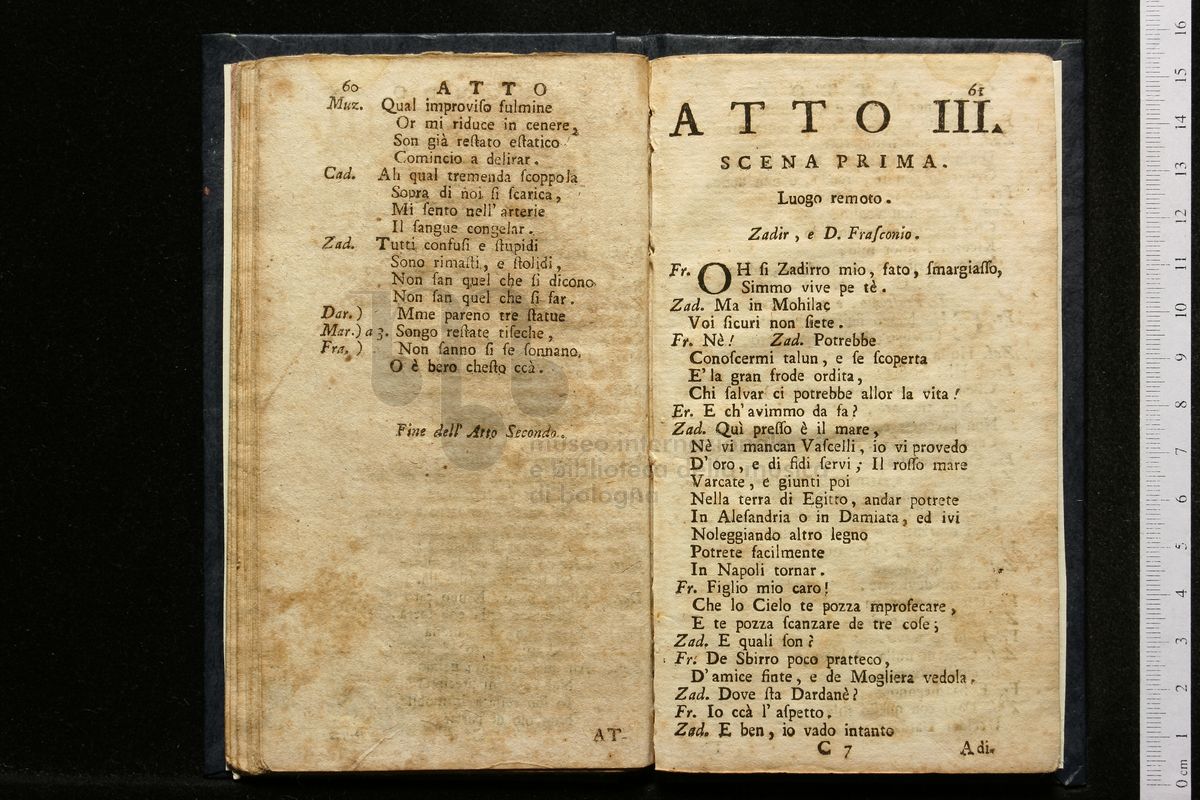 60 ATTO
Muz. Qual improviſo fulmine
Or mi riduce in cenere,
Son già reſtato eſtatico
Comincio a delirar.
Cad. Ah qual tremenda ſcoppola
Sopra di noi ſi ſcarica,
Mi ſento nell' arterie
Il ſangue congelar.
Zad. Tutti confuſi e ſtupidi
Sono rimaſti, e ſtolidi,
Non ſan quel che ſi dicono
Non ſan quel che ſi far.
Dar. ) Mme pareno tre ſtatue
Mar. ) a 3. Songo reſtate tiſeche,
Fra. ) Non ſanno ſi ſe ſonnano,
O è bero cheſto ccà.
Fine dell' Atto Secondo.
AT-
61
ATTO III.
SCENA PRIMA.
Luogo remoto.
Zadir, e D. Fraſconio.
Fr. OH ſi Zadirro mio, fato, ſmargiaſſo,
Simmo vive pe tè.
Zad. Ma in Mohilac
Voi ſicuri non ſiete.
Fr. Nè! Zad. Potrebbe
Conoſcermi talun, e ſe ſcoperta
E' la gran frode ordita,
Chi ſalvar ci potrebbe allor la vita!
Er. E ch' avimmo da fa?
Zad. Quì preſſo è il mare,
Nè vi mancan Vaſcelli, io vi provedo
D' oro, e di fidi ſervi; Il roſſo mare
Varcate, e giunti poi
Nella terra di Egitto, andar potrete
In Aleſandria o in Damiata, ed ivi
Noleggiando altro legno
Potrete facilmente
In Napoli tornar.
Fr. Figlio mio caro!
Che lo Cielo te pozza mproſecare,
E te pozza ſcanzare de tre coſe;
Zad. E quali ſon?
Fr. De Sbirro poco pratteco,
D' amice finte, e de Mogliera vedola.
Zad. Dove ſta Dardanè?
Fr. Io ccà l' aſpetto.
Zad. E ben, io vado intanto
C 7 Adi-
museo internazionale
e biblioteca della musica
di bologna
0 cm 1 2 3 4 5 6 7 8 9 10 11 12 13 14 15 16